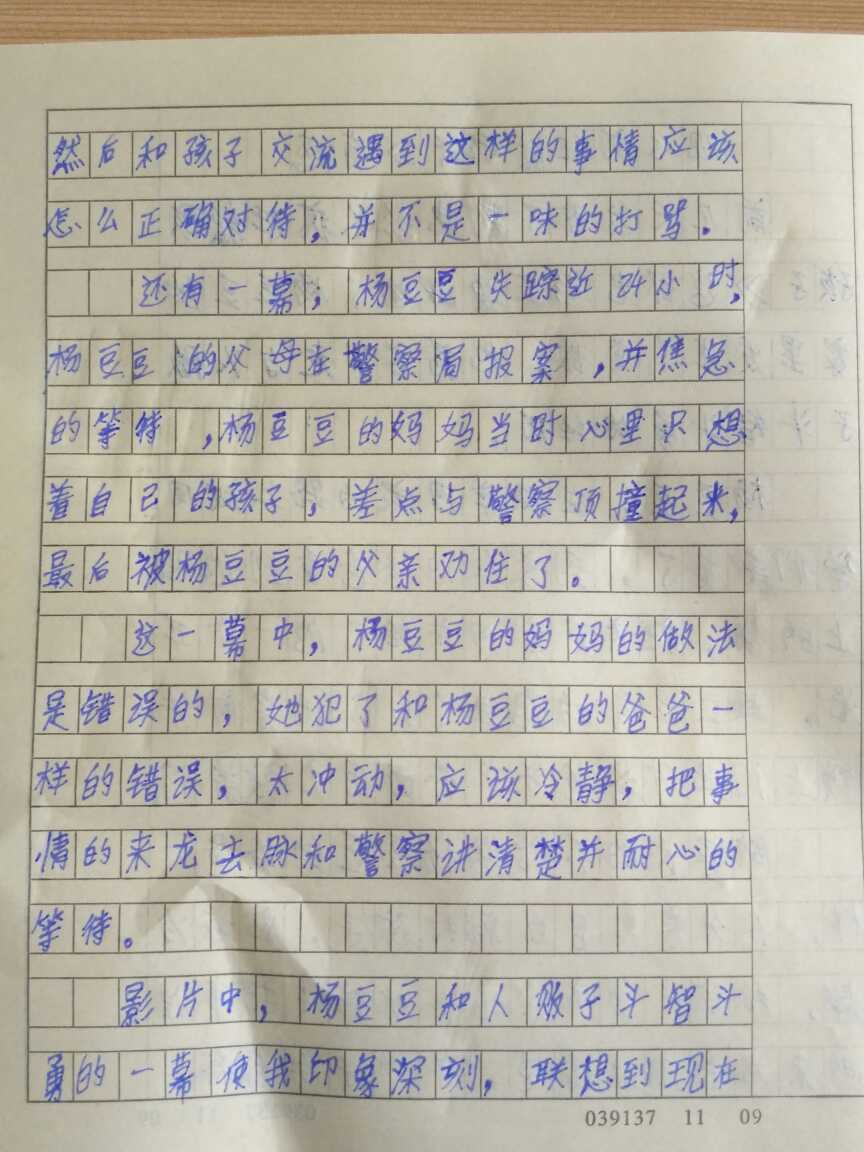 然后和孩子交流遇到这样的事情应该
怎么正确对待，并不是一味的打骂．
还有一幕，杨豆豆失踪近24小时，
杨豆豆的父母在警察局报案，并焦急
的等待，杨豆豆的妈妈当时心里只想
着自己的孩子，差点与警察顶撞起来，
最后被杨豆豆的父亲劝住了。
这一幕中，杨豆豆的妈妈的做法
是错误的，她犯了和杨豆豆的爸爸一
样的错误，太冲动，应该冷静，把事
情的来龙去脉和警察讲清楚并耐心的
等待。
影片中，杨豆豆和人贩子斗智斗
勇的一幕使我印象深刻，联想到现在
039137 11 09